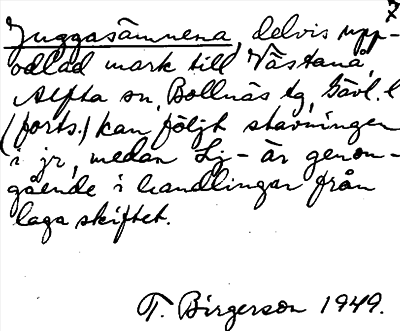 7
Juggasämnena, delvis upp-
odlad mark till Västanå,
Alfta sn, Bollnäs tg, Gävl. l
(forts.) kan följt stavningen
i jr, medan Lj- är genom-
gående i handlingar från
laga skiftet.
T. Birgerson 1949.